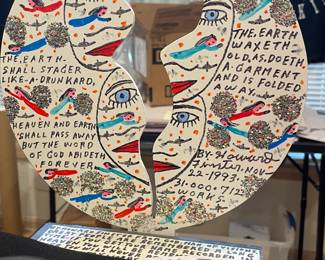 THE.EARTH-
SHALL STAGER
LIKE-A-DRUNKARD,
HEAVEN AND EARTH
SHALL PASS AWAY
BUT THE WORD
OF GOD ABIDETH
FOREVER
THE.EARTH
WAXETH-
OLD.AS.DOETH.
A GARMENT
AND IS FOLDED
AWAY.
BY-Howard
Finster.NOV-
22-1993.
31.000.712.
WORKS.